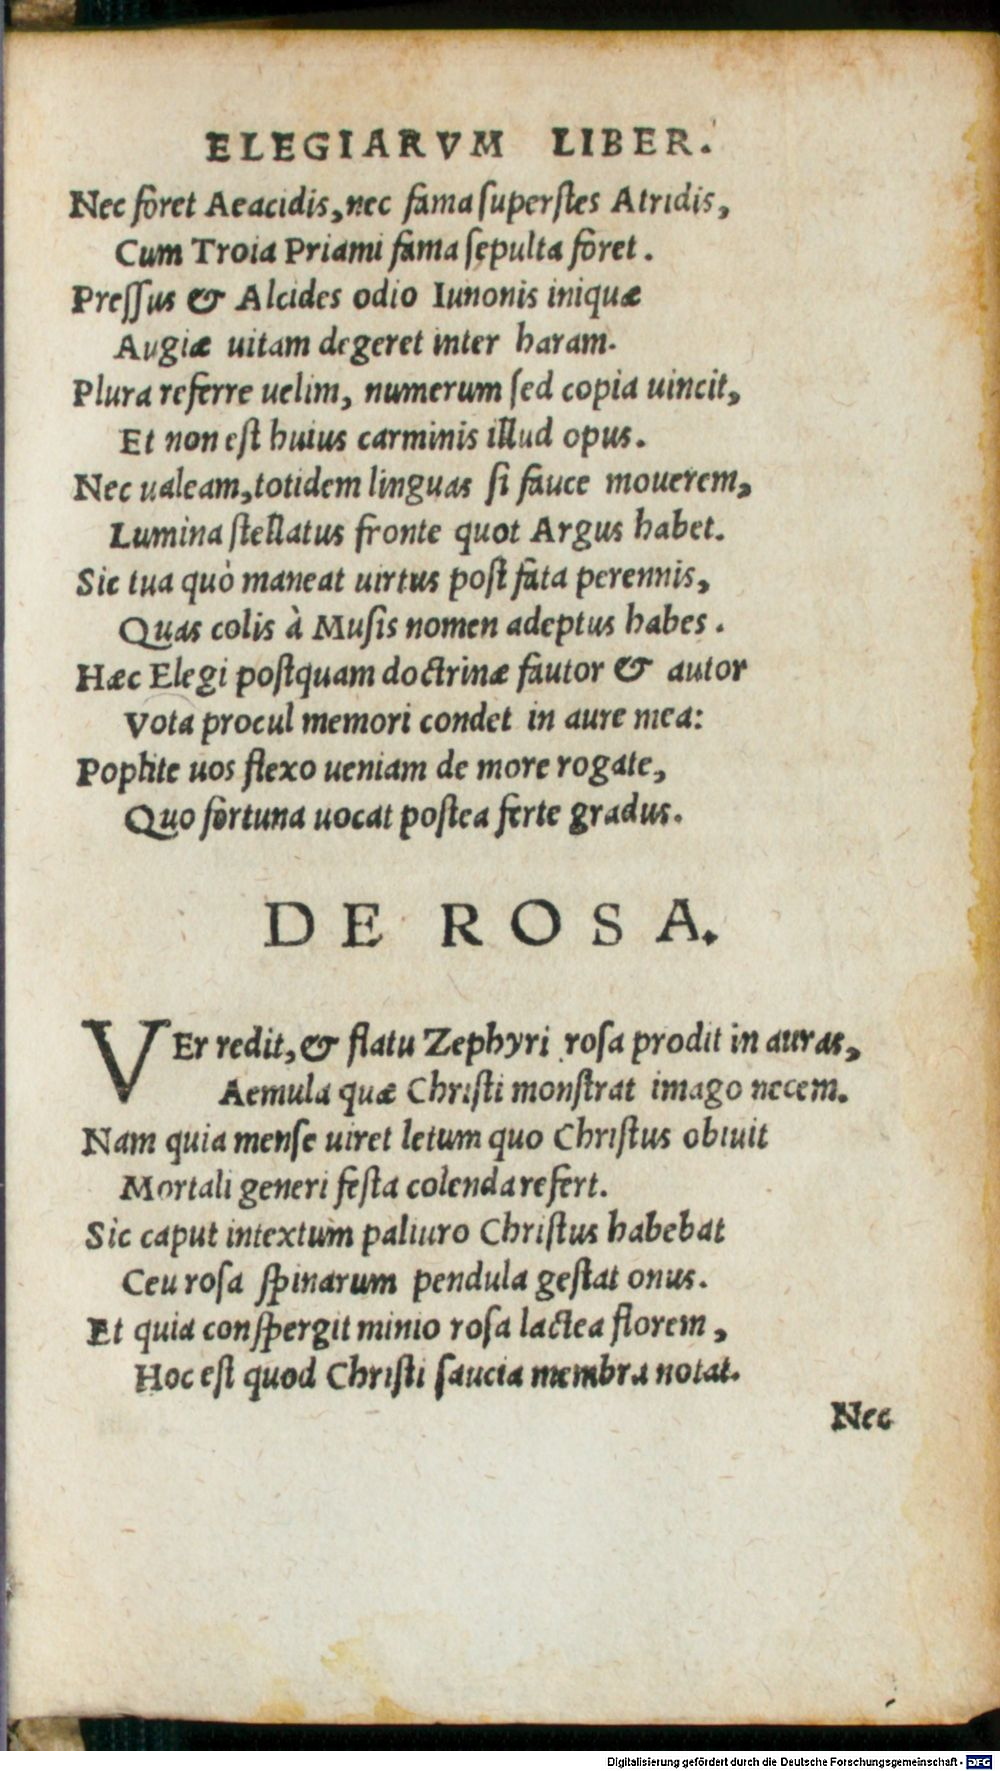 ELEGIARVM LIBER.
Nec foret Aeacidis, nec fama ſuperſtes Atridis,
Cum Troia Priami fama ſepulta foret.
Preſſus & Alcides odio Iunonis iniquæ
Augiæ uitam degeret inter haram.
Plura referre uelim, numerum ſed copia uincit,
Et non eſt huius carminis illud opus.
Nec ualeam, totidem linguas ſi fauce mouerem,
Lumina ſtellatus fronte quot Argus habet.
Sic tua quò maneat uirtus poſt fata perennis,
Quas colis à Muſis nomen adeptus habes.
Hæc Elegi poſtquam doctrinæ fautor & autor
Vota procul memori condet in aure mea:
Poplite uos flexo ueniam de more rogate,
Quo fortuna uocat poſtea ferte gradus.
DE ROSA.
VEr redit, & flatu Zephyri roſa prodit in auras,
Aemula quæ Chriſti monſtrat imago necem.
Nam quia menſe uiret letum quo Chriſtus obiuit
Mortali generi feſta colenda refert.
Sic caput intextum paliuro Chriſtus habebat
Ceu roſa ſpinarum pendula geſtat onus.
Et quia conſpergit minio roſa lactea florem,
Hoc eſt quod Chriſti ſaucia membra notat.
Nec
Digitalisierung gefördert durch die Deutsche Forschungsgemeinschaft - DFG